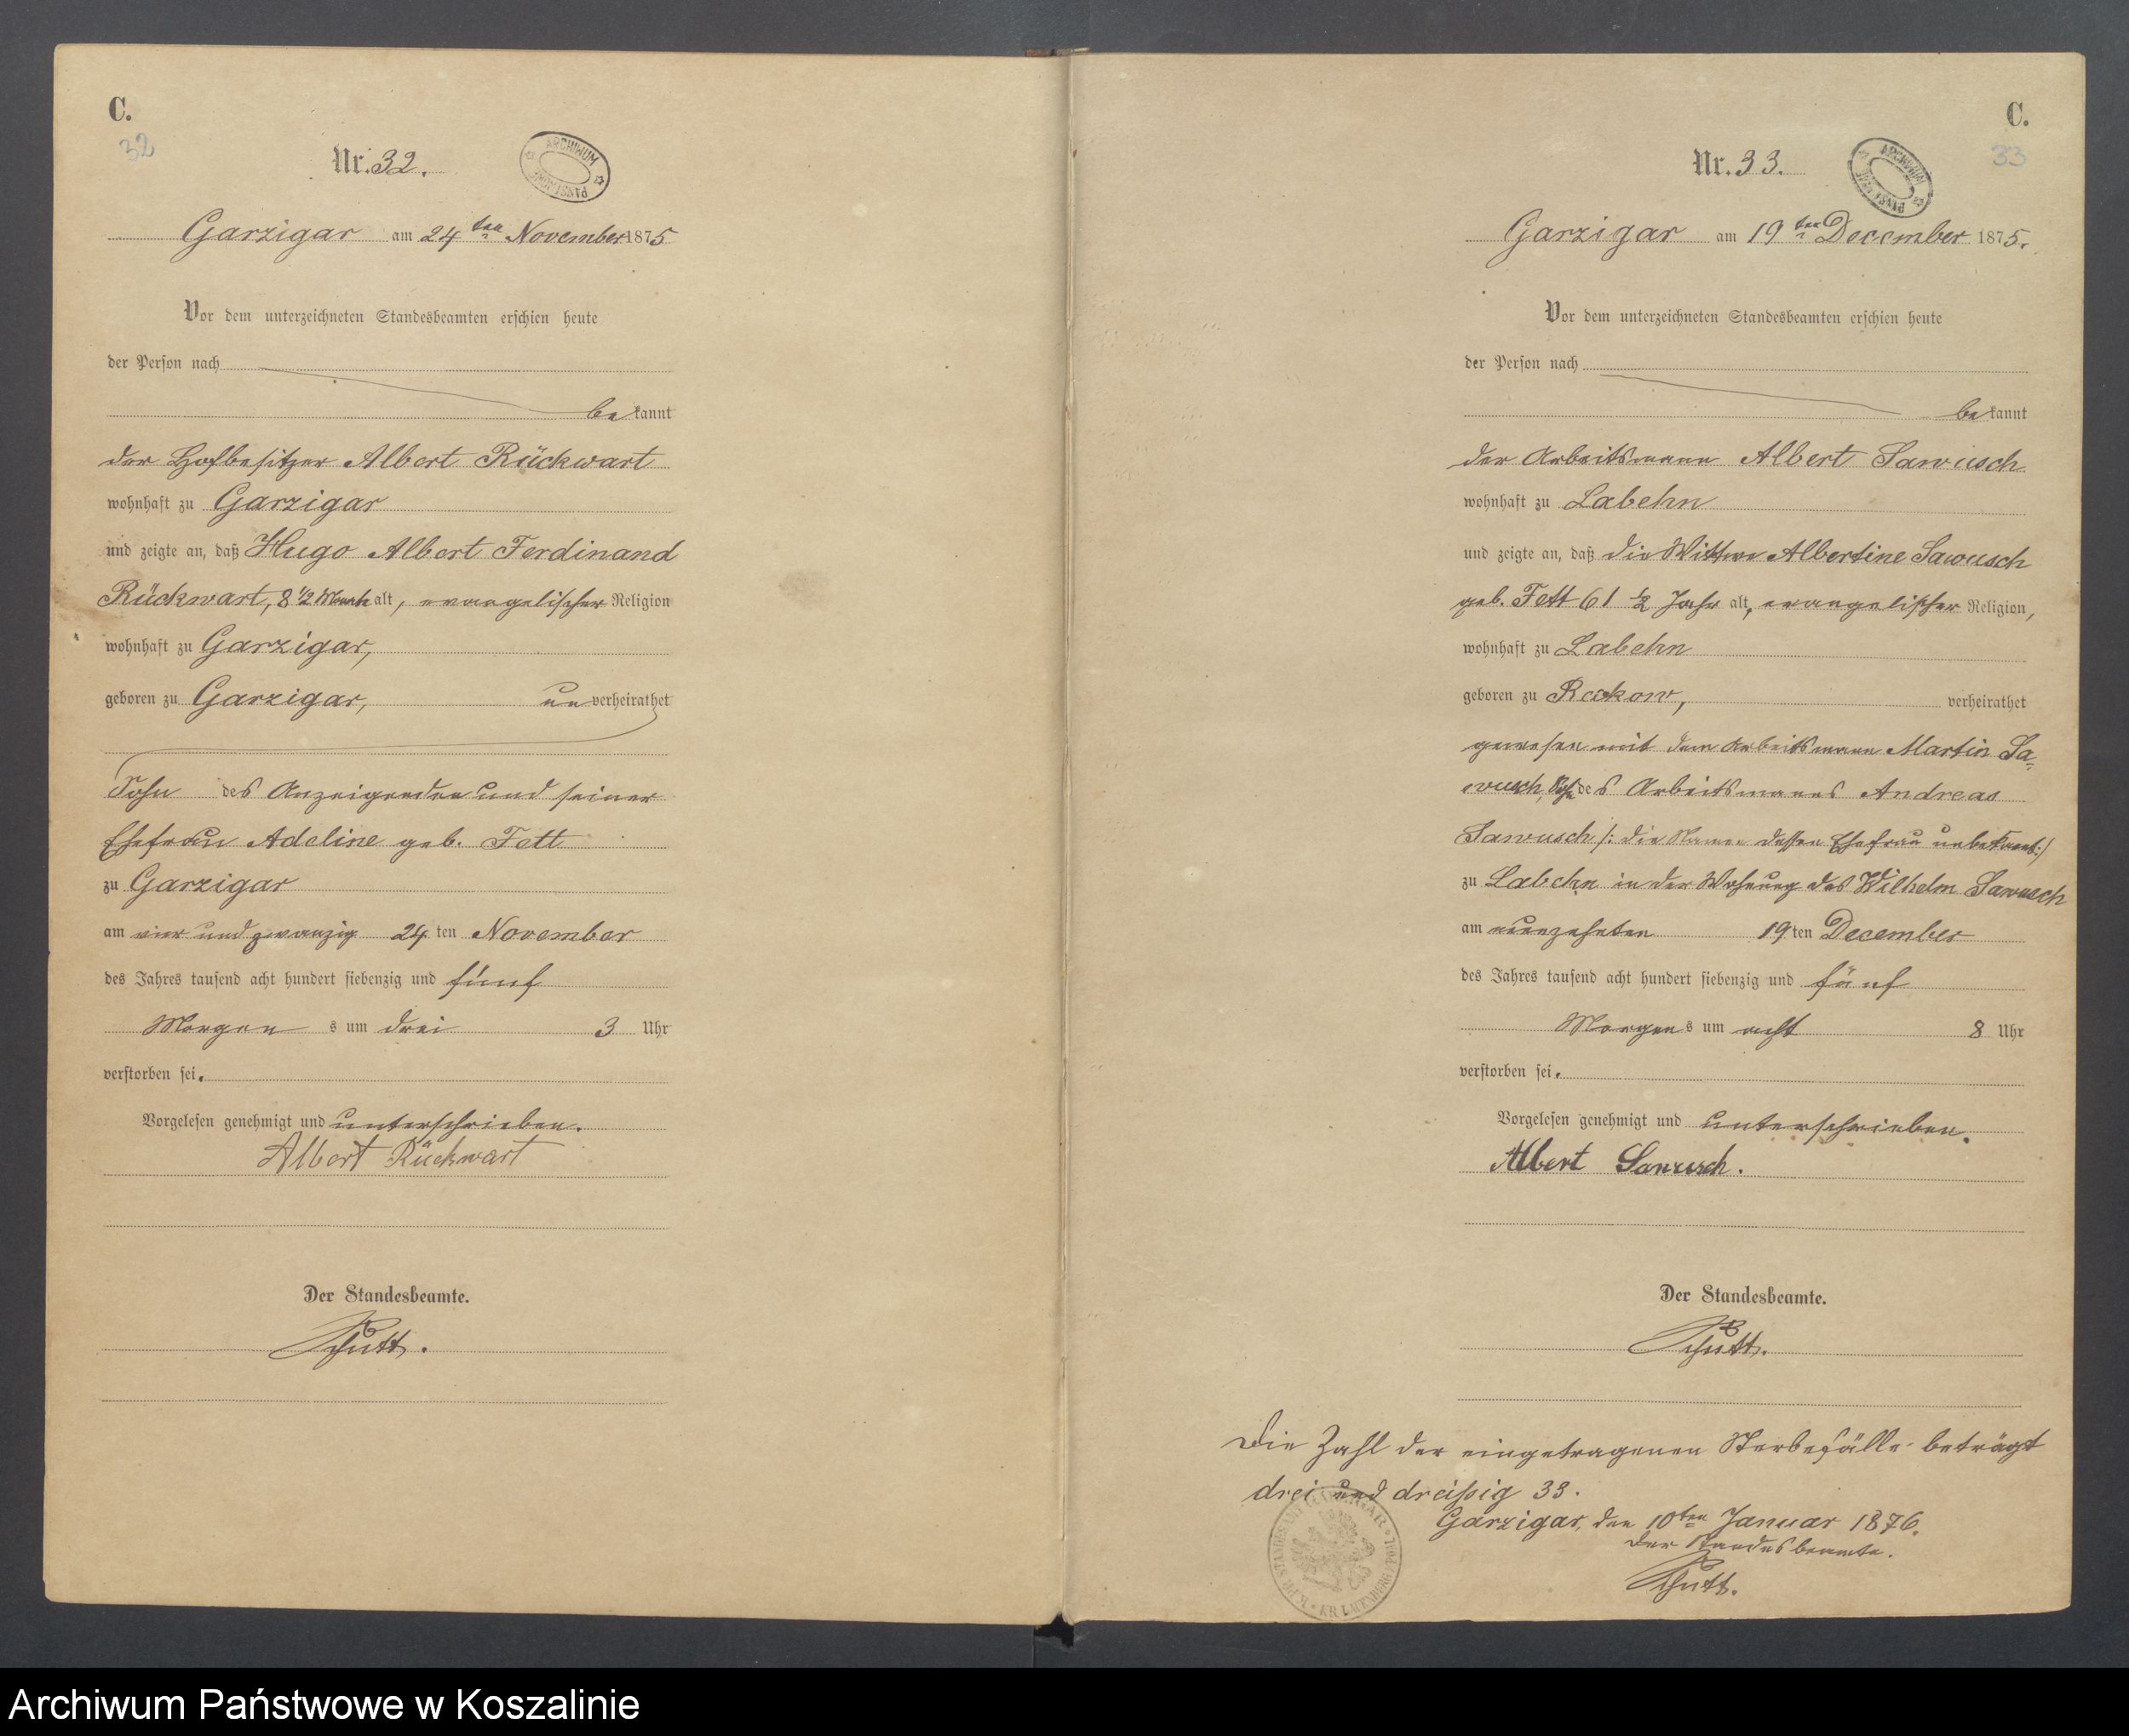 C.
32
Nr. 32.
ARCHIWUM
Garzigar am 24ten November 1875
Vor dem unterzeichneten Standesbeamten erschien heute
der Person nach
bekannt
der Hofbesitzer Albert Rückwart
wohnhaft zu Garzigar
und zeigte an, daß Hugo Albert Ferdinand
Rückwart, 8 1/2 alt, evangelischer Religion
wohnhaft zu Garzigar,
geboren zu Garzigar, unverheirathet
Sohn des Anzeigenden und seiner
Ehefrau Adeline geb. Fett
zu Garzigar
am vier und zwanzig 24 ten November
des Jahres tausend acht hundert siebenzig und fünf
Morgens um drei 3 Uhr
verstorben sei.
Vorgelesen genehmigt und unterschrieben.
Albert Rückwart
Der Standesbeamte.
C.
33
Nr. 33.
ARCHIWUM
Garzigar am 19ten December 1875.
Vor dem unterzeichneten Standesbeamten erschien heute
der Person nach
bekannt
der Arbeitsmann Albert Sawusch
wohnhaft zu Labehn
und zeigte an, daß die Wittwe Albertine Sawusch
geb. Fett 61 1/2 Jahr alt, evangelischer Religion,
wohnhaft zu Labehn
geboren zu Reckow, verheirathet
gewesen mit dem Arbeitsmann Martin Sa=
wusch, Sohn des Arbeitsmanns Andreas
Sawusch /: die Namen dessen Ehefrau unbekannt :/
zu Labehn in der Wohnung des Wilhelm Sawusch
am neunzehnten 19 ten December
des Jahres tausend acht hundert siebenzig und fünf
Morgens um acht 8 Uhr
verstorben sei.
Vorgelesen genehmigt und unterschrieben.
Albert Sawusch.
Der Standesbeamte.
Die Zahl der eingetragenen Sterbefälle beträgt
drei und dreißig 33.
Garzigar, den 10ten Januar 1876.
Der Standesbeamte.
Archiwum Państwowe w Koszalinie